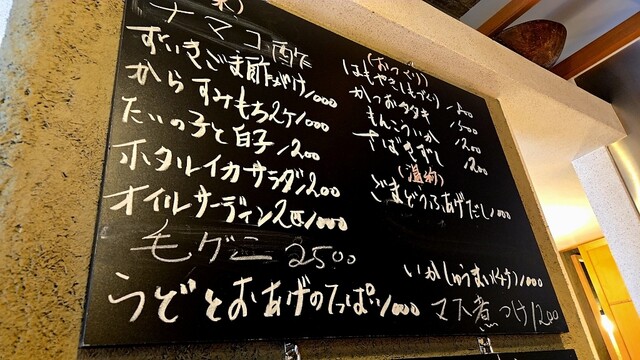 ナマコ酢
ずいきごま酢がけ 1000
からすみもち2ケ 1000
たいの子と白子 1200
ホタルイカサラダ 1200
オイルサーディン2匹 1000
毛ガニ 2500
うどとおあげのてっぱい 1000
(おつくり)
かつおタタキ
もんごういか 1200
さばきずし 1200
(温物)
ごまどうふあげだし 1000
いかしゅうまい(4ケ) 1000
マス煮つけ 1200